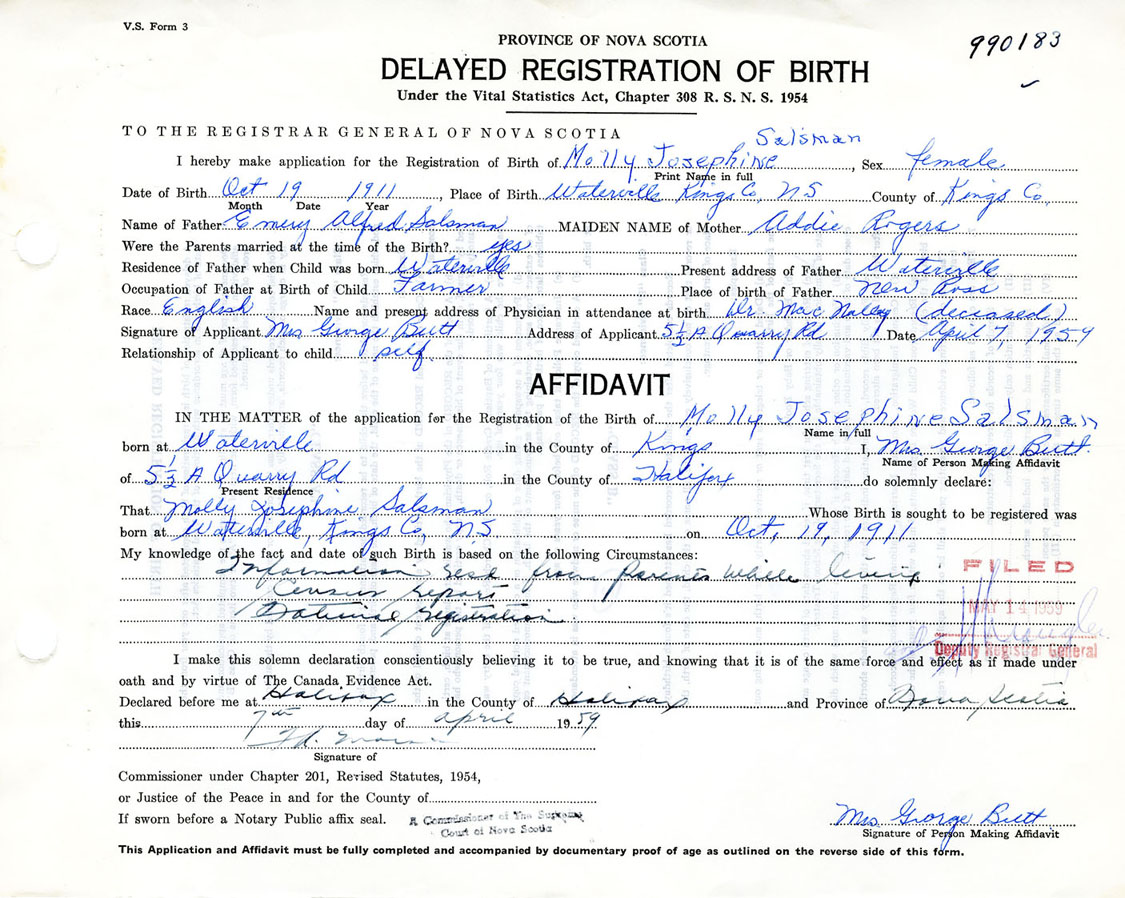 V.S. Form 3
990183
PROVINCE OF NOVA SCOTIA
DELAYED REGISTRATION OF BIRTH
Under the Vital Statistics Act, Chapter 308 R. S. N. S. 1954
TO THE REGISTRAR GENERAL OF NOVA SCOTIA
Salsman
I hereby make application for the Registration of Birth of Molly Josephine, Sex female
Print Name in full
Date of Birth Oct 19 1911, Place of Birth Waterville Kings Co, NS County of Kings Co,
Month Date Year
Name of Father Emery Alfred Salsman MAIDEN NAME of Mother Addie Rogers
Were the Parents married at the time of the Birth? yes
Residence of Father when Child was born Waterville Present address of Father Waterville
Occupation of Father at Birth of Child Farmer Place of birth of Father New Ross
Race English Name and present address of Physician in attendance at birth Dr. Mac Nalley (deceased)
Signature of Applicant Mrs George Butt Address of Applicant 5½ A Quarry Rd Date April 7, 1959
Relationship of Applicant to child self
AFFIDAVIT
IN THE MATTER of the application for the Registration of the Birth of Molly Josephine Salsman
Name in full
born at Waterville in the County of Kings I, Mrs. George Butt.
Name of Person Making Affidavit
of 5½ A Quarry Rd in the County of Halifax do solemnly declare:
Present Residence
That Molly Josephine Salsman Whose Birth is sought to be registered was
born at Waterville, Kings Co, NS on Oct, 19, 1911
My knowledge of the fact and date of such Birth is based on the following Circumstances:
Information from parents while living
Census report
National registration
FILED
MAY 14 1959
Deputy Registrar General
I make this solemn declaration conscientiously believing it to be true, and knowing that it is of the same force and effect as if made under
oath and by virtue of The Canada Evidence Act.
Declared before me at Halifax in the County of Halifax and Province of Nova Scotia
this 7th day of April 1959
Signature of
Commissioner under Chapter 201, Revised Statutes, 1954,
or Justice of the Peace in and for the County of
If sworn before a Notary Public affix seal. A Commissioner of The Supreme
Court of Nova Scotia
Mrs George Butt
Signature of Person Making Affidavit
This Application and Affidavit must be fully completed and accompanied by documentary proof of age as outlined on the reverse side of this form.